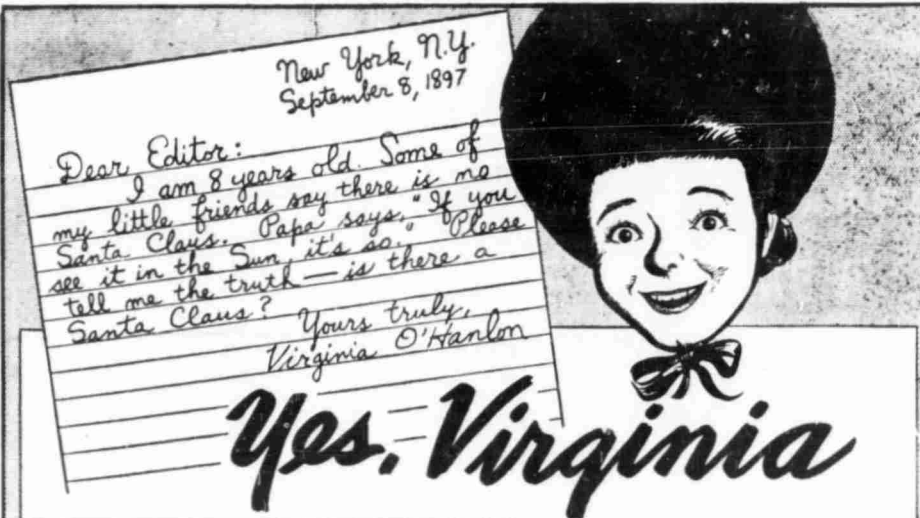 New York, N.Y.
September 8, 1897
Dear Editor:
I am 8 years old. Some of
my little friends say there is no
Santa Claus. Papa says, "If you
see it in the Sun, it's so." Please
tell me the truth — is there a
Santa Claus?
Yours truly,
Virginia O'Hanlon
Yes, Virginia